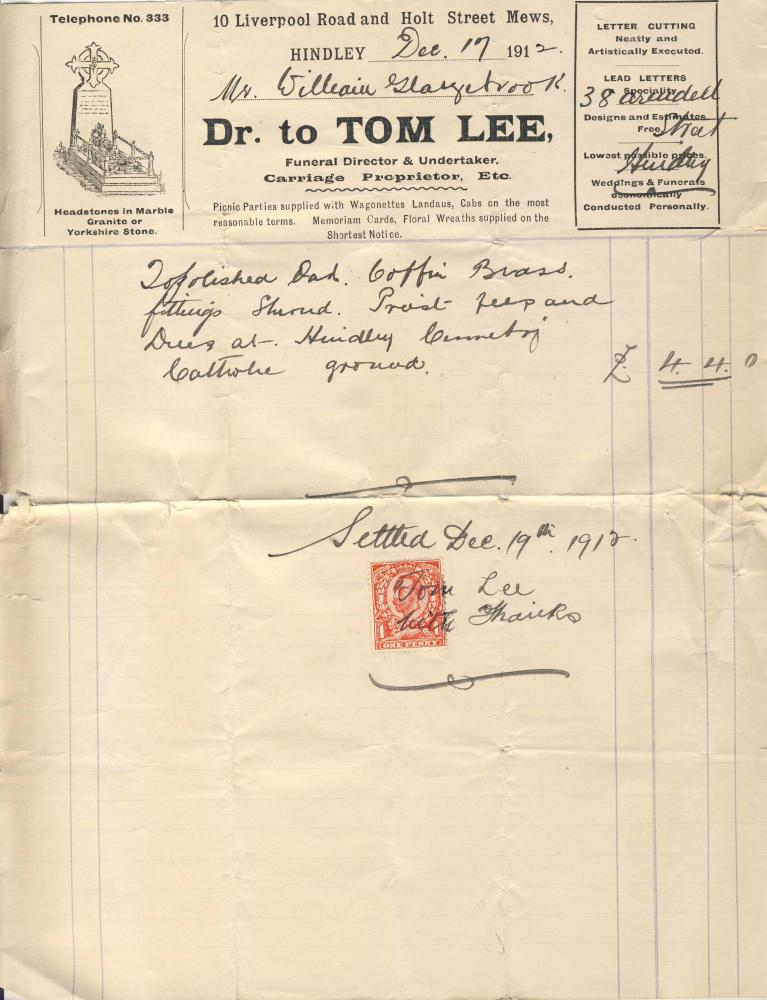 Telephone No. 333
Headstones in Marble
Granite or
Yorkshire Stone.
10 Liverpool Road and Holt Street Mews,
HINDLEY Dec. 17 1912.
Mr. William Glazebrook.
38 Arundell
Strat
Hindley
Dr. to TOM LEE,
Funeral Director & Undertaker,
Carriage Proprietor, Etc.
Picnic Parties supplied with Wagonettes Landaus, Cabs on the most
reasonable terms. Memoriam Cards, Floral Wreaths supplied on the
Shortest Notice.
LETTER CUTTING
Neatly and
Artistically Executed.
LEAD LETTERS
Speciality
Designs and Estimates
Free
Lowest possible prices.
Weddings & Funerals
economically
Conducted Personally.
To polished Oak. Coffin Brass.
fittings Shroud. Preist fees and
Dues at Hindley
ground.
£ 4. 4. 0
Settled Dec. 19th 1912.
Tom Lee
with Thanks
1
ONE PENNY